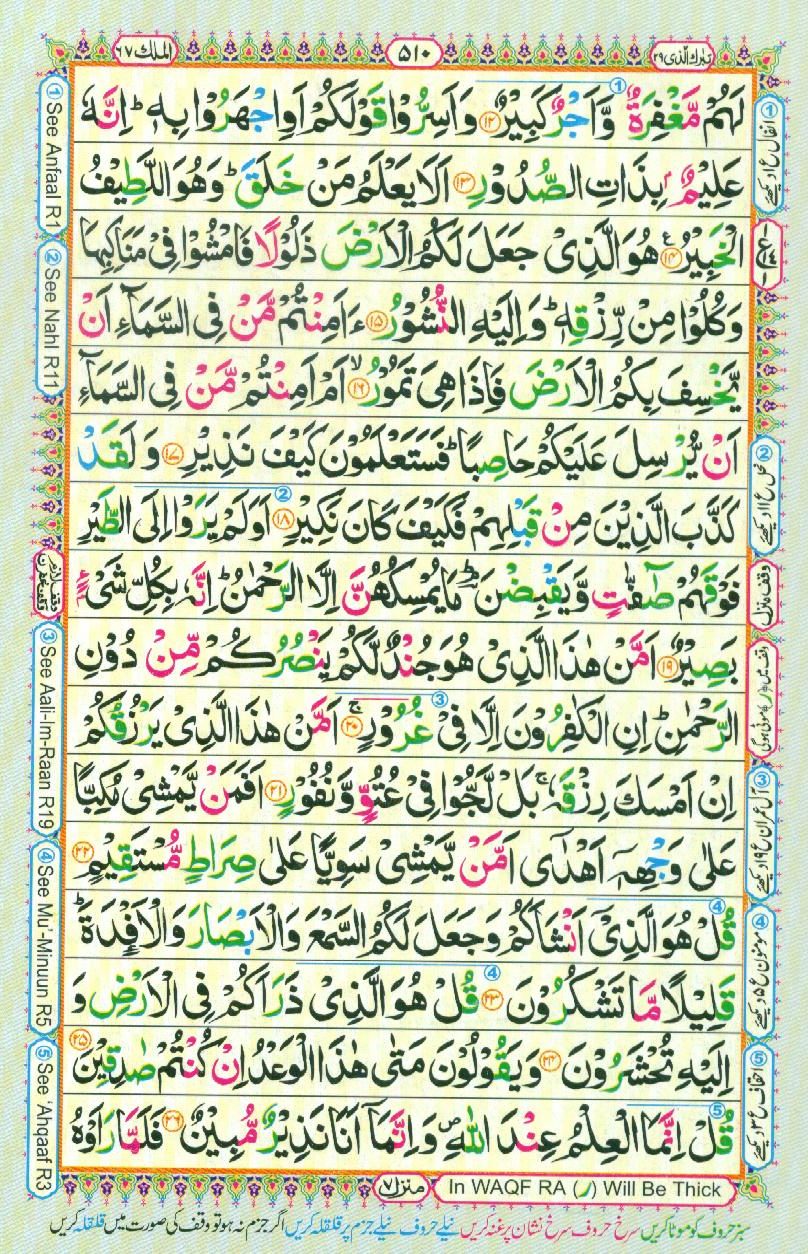 الملك ٦٧
٥١٠
تبٰرك الّذى ٢٩
لَهُمْ مَّغْفِرَةٌ وَّاَجْرٌ كَبِيْرٌ ﴿١٢﴾ وَاَسِرُّوْا قَوْلَكُمْ اَوِاجْهَرُوْا بِهٖ ؕ اِنَّهٗ
عَلِيْمٌۢ بِذَاتِ الصُّدُوْرِ ﴿١٣﴾ اَلَا يَعْلَمُ مَنْ خَلَقَ ؕ وَهُوَ اللَّطِيْفُ
الْخَبِيْرُ ﴿١٤﴾ هُوَ الَّذِىْ جَعَلَ لَكُمُ الْاَرْضَ ذَلُوْلًا فَامْشُوْا فِىْ مَنَاكِبِهَا
وَكُلُوْا مِنْ رِّزْقِهٖ ؕ وَاِلَيْهِ النُّشُوْرُ ﴿١٥﴾ ءَاَمِنْتُمْ مَّنْ فِى السَّمَآءِ اَنْ
يَّخْسِفَ بِكُمُ الْاَرْضَ فَاِذَا هِىَ تَمُوْرُ ۙ﴿١٦﴾ اَمْ اَمِنْتُمْ مَّنْ فِى السَّمَآءِ
اَنْ يُّرْسِلَ عَلَيْكُمْ حَاصِبًا ؕ فَسَتَعْلَمُوْنَ كَيْفَ نَذِيْرِ ﴿١٧﴾ وَلَقَدْ
كَذَّبَ الَّذِيْنَ مِنْ قَبْلِهِمْ فَكَيْفَ كَانَ نَكِيْرِ ﴿١٨﴾ اَوَلَمْ يَرَوْا اِلَى الطَّيْرِ
فَوْقَهُمْ صٰٓفّٰتٍ وَّيَقْبِضْنَ ؕ مَا يُمْسِكُهُنَّ اِلَّا الرَّحْمٰنُ ؕ اِنَّهٗ بِكُلِّ شَىْءٍۢ
بَصِيْرٌ ﴿١٩﴾ اَمَّنْ هٰذَا الَّذِىْ هُوَ جُنْدٌ لَّكُمْ يَنْصُرُكُمْ مِّنْ دُوْنِ
الرَّحْمٰنِ ؕ اِنِ الْكٰفِرُوْنَ اِلَّا فِىْ غُرُوْرٍ ۚ﴿٢٠﴾ اَمَّنْ هٰذَا الَّذِىْ يَرْزُقُكُمْ
اِنْ اَمْسَكَ رِزْقَهٗ ۚ بَلْ لَّجُّوْا فِىْ عُتُوٍّ وَّنُفُوْرٍ ﴿٢١﴾ اَفَمَنْ يَّمْشِىْ مُكِبًّا
عَلٰى وَجْهِهٖٓ اَهْدٰٓى اَمَّنْ يَّمْشِىْ سَوِيًّا عَلٰى صِرَاطٍ مُّسْتَقِيْمٍ ﴿٢٢﴾
قُلْ هُوَ الَّذِىْٓ اَنْشَاَكُمْ وَجَعَلَ لَكُمُ السَّمْعَ وَالْاَبْصَارَ وَالْاَفْـِٕدَةَ ؕ
قَلِيْلًا مَّا تَشْكُرُوْنَ ﴿٢٣﴾ قُلْ هُوَ الَّذِىْ ذَرَاَكُمْ فِى الْاَرْضِ وَ
اِلَيْهِ تُحْشَرُوْنَ ﴿٢٤﴾ وَيَقُوْلُوْنَ مَتٰى هٰذَا الْوَعْدُ اِنْ كُنْتُمْ صٰدِقِيْنَ ﴿٢٥﴾
قُلْ اِنَّمَا الْعِلْمُ عِنْدَ اللّٰهِ ۖ وَاِنَّمَآ اَنَا نَذِيْرٌ مُّبِيْنٌ ﴿٢٦﴾ فَلَمَّا رَاَوْهُ
① See Anfaal R1
② See Nahl R11
③ See Aali-Im-Raan R19
④ See Mu'-Minuun R5
⑤ See 'Ahqaaf R3
① انفال ع ١ دیکھئے
② نحل ع ١١ دیکھئے
وقف منزل
③ آل عمران ع ١٩ دیکھئے
④ مومنون ع ٥ دیکھئے
⑤ احقاف ع ٣ دیکھئے
منزل ٧
In WAQF RA (ر) Will Be Thick
سبز حروف کو موٹا کریں سرخ حروف سرخ نشان پر غنہ کریں نیلے حروف نیلے جزم پر قلقلہ کریں اگر جزم نہ ہو تو وقف کی صورت میں قلقلہ کریں